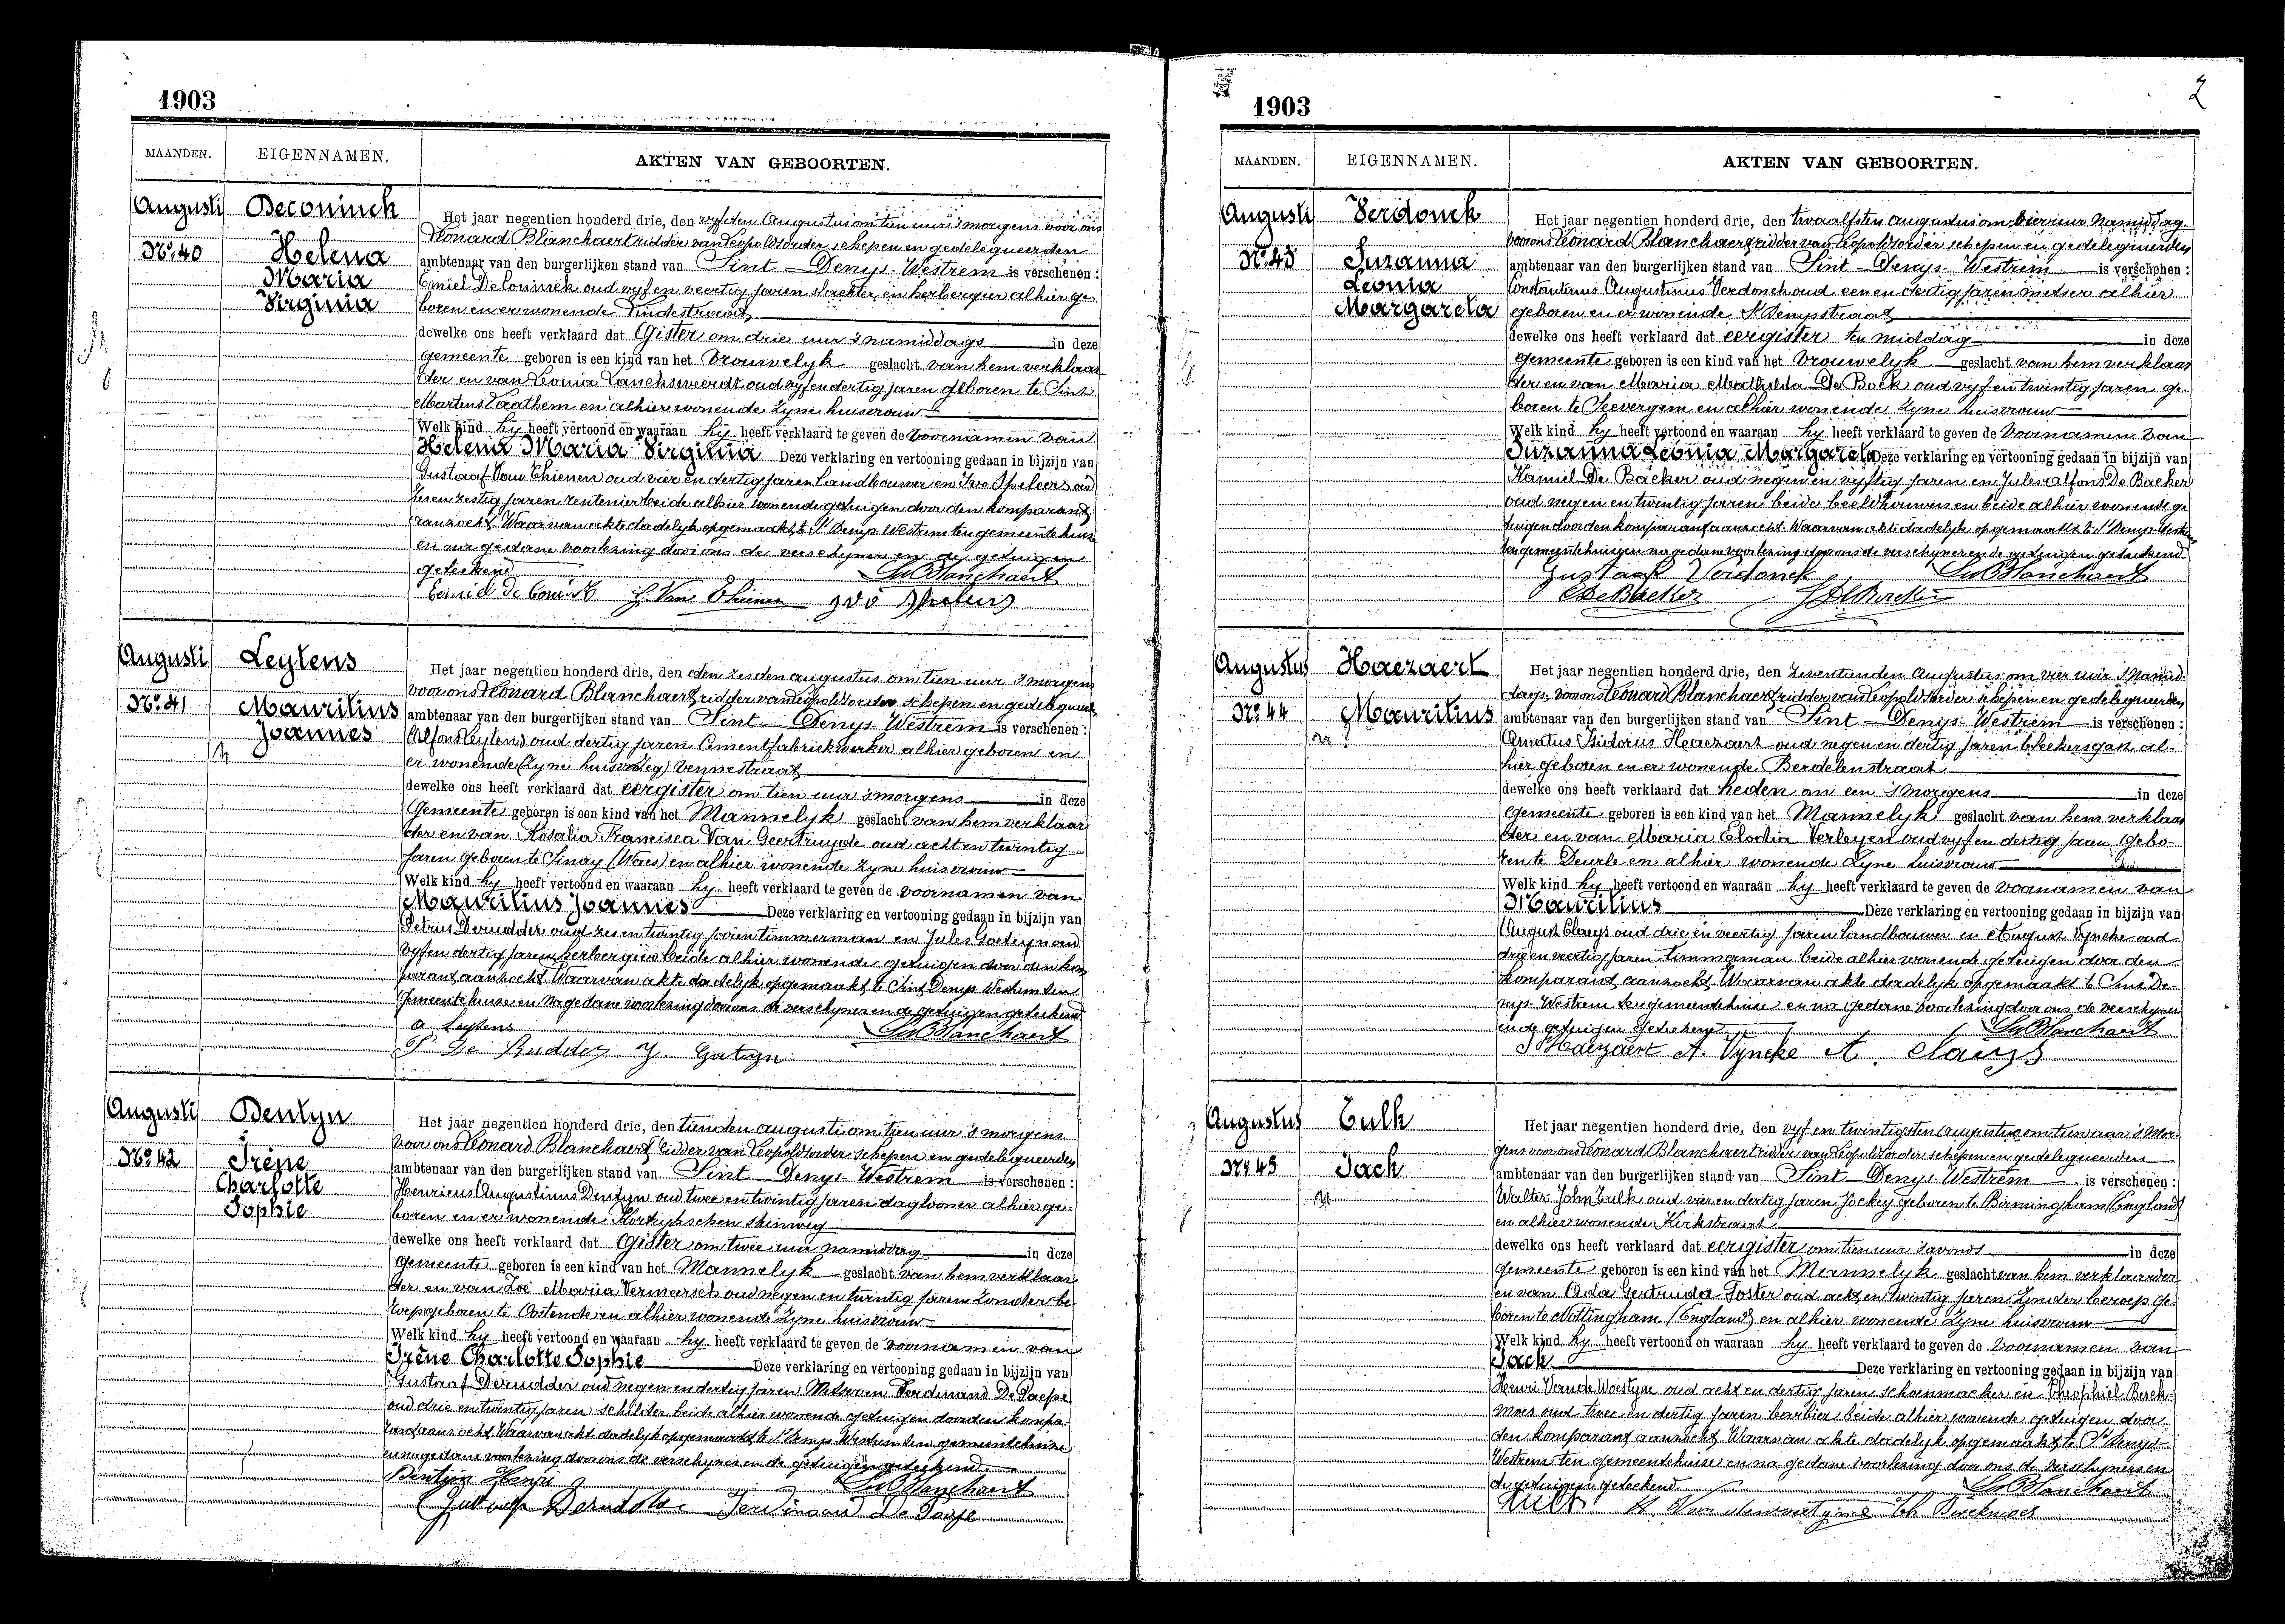 1903
MAANDEN. EIGENNAMEN. AKTEN VAN GEBOORTEN.
Augusti Deconinck
No. 40 Helena
Maria
Virginia
Het jaar negentien honderd drie, den vyfden Augustus om tien uur 's morgens voor ons
Leonard Blanchaert ridder van Leopolds order schepen en gedelegueerden
ambtenaar van den burgerlijken stand van Sint Denys Westrem is verschenen :
Emiel De Coninck oud vyf en veertig jaren slachter en herbergier alhier ge-
boren en er wonende Lindestraat
dewelke ons heeft verklaard dat Gister om drie uur 's namiddags in deze
gemeente geboren is een kind van het Vrouwelyk geslacht van hem verklaar
der en van Leonia Lancksweerdt oud vyf en dertig jaren geboren te Sint
Martens Laathem en alhier wonende zyne huisvrouw
Welk kind hy heeft vertoond en waaraan hy heeft verklaard te geven de voornamen van
Helena Maria Virginia Deze verklaring en vertooning gedaan in bijzijn van
Gustaaf Van Thienen oud vier en dertig jaren Landbouwer en Ivo Speleers oud
zes en zestig jaren rentenier beide alhier wonende getuigen door den komparant
aanzocht. Waarvan akte dadelyk opgemaakt te St Denys Westrem ten gemeentehuize
en na gedane voorlezing door ons de verschyner en de getuigen
geteekend Ld Blanchaert
Emiel De Coninck G. Van Thienen Ivo Speleers
Augusti Leytens
No. 41 Mauritius
Joannes
Het jaar negentien honderd drie, den den zesden augustus om tien uur 's morgens
voor ons Leonard Blanchaert, ridder van Leopolds order schepen en gedelegueer
ambtenaar van den burgerlijken stand van Sint Denys Westrem is verschenen :
Alfons Leytens oud dertig jaren Cementfabriekwerker alhier geboren en
er wonende Vennestraat
dewelke ons heeft verklaard dat eergister om tien uur 's morgens in deze
Gemeente geboren is een kind van het Mannelyk geslacht van hem verklaar
der en van Rosalia Francisca Van Geertruyde oud acht en twintig
jaren geboren te Sinay (Waes) en alhier wonende zyne huisvrouw
Welk kind hy heeft vertoond en waaraan hy heeft verklaard te geven de voornamen van
Mauritius Joannes Deze verklaring en vertooning gedaan in bijzijn van
Petrus Derudder oud zes en twintig jaren timmerman en Jules Goeteyn oud
vyf en dertig jaren herbergier beide alhier wonende getuigen door den kom
parant aanzocht. Waarvan akte dadelyk opgemaakt te Sint Denys Westrem ten
Gemeentehuize en na gedane voorlezing door ons de verschyner en de getuigen geteekend
A Leytens Ld Blanchaert
P De Rudder J. Goeteyn
Augusti Dentyn
No. 42 Irène
Charlotte
Sophie
Het jaar negentien honderd drie, den tienden augusti om tien uur 's morgens
voor ons Leonard Blanchaert, ridder van Leopolds order schepen en gedelegueerden
ambtenaar van den burgerlijken stand van Sint Denys Westrem is verschenen :
Henricus Augustinus Dentyn oud twee en twintig jaren daglooner alhier ge-
boren en er wonende Kortrykschen steinweg
dewelke ons heeft verklaard dat Gister om twee uur namiddag in deze
gemeente geboren is een kind van het Mannelyk geslacht van hem verklaar
der en van Zoë Maria Vermeersch oud negen en twintig jaren zonder be-
roep geboren te Oostende en alhier wonende zyne huisvrouw
Welk kind hy heeft vertoond en waaraan hy heeft verklaard te geven de voornamen van
Irène Charlotte Sophie Deze verklaring en vertooning gedaan in bijzijn van
Gustaaf Derudder oud negen en dertig jaren Metser en Ferdinand De Paepe
oud drie en twintig jaren schilder beide alhier wonende getuigen door den kompa
rant aanzocht Waarvan akte dadelyk opgemaakt te St Denys Westrem ten gemeentehuize
en na gedane voorlezing door ons de verschyner en de getuigen geteekend
Dentyn Henri Ld Blanchaert
Gustaaf Derudder Ferdinand De Paepe
2
1903
MAANDEN. EIGENNAMEN. AKTEN VAN GEBOORTEN.
Augusti Verdonck
No. 43 Suzanna
Leonia
Margareta
Het jaar negentien honderd drie, den twaalfsten augustus om vier uur Namiddag
voor ons Leonard Blanchaert ridder van Leopolds order schepen en gedelegueerden
ambtenaar van den burgerlijken stand van Sint Denys Westrem is verschenen :
Constantinus Augustinus Verdonck oud een en dertig jaren metser alhier
geboren en er wonende St Denysstraat
dewelke ons heeft verklaard dat eergister ten middag in deze
gemeente geboren is een kind van het Vrouwelyk geslacht van hem verklaar
der en van Maria Mathilda De Bock oud vyf en twintig jaren ge-
boren te Seevergem en alhier wonende zyne huisvrouw
Welk kind hy heeft vertoond en waaraan hy heeft verklaard te geven de voornamen van
Suzanna Léonia Margareta Deze verklaring en vertooning gedaan in bijzijn van
Kamiel De Backer oud negen en vyftig jaren en Jules Alfons De Backer
oud negen en twintig jaren beide beeldhouwers en beide alhier wonende ge
tuigen door den komparant aanzocht Waarvan akte dadelyk opgemaakt te St Denys Westrem
ten gemeentehuize en na gedane voorlezing door ons de verschyner en de getuigen geteekend
Gustaaf Verdonck Ld Blanchaert
C De Backer J De Backer
Augustus Haezaert
No. 44 Mauritius
Het jaar negentien honderd drie, den Zeventienden Augustus om vier uur 's Namid-
dags voor ons Leonard Blanchaert ridder van Leopolds order schepen en gedelegueerden
ambtenaar van den burgerlijken stand van Sint Denys Westrem is verschenen :
Amatus Isidorius Haezaert oud negen en dertig jaren bleekersgast al-
hier geboren en er wonende Berdelenstraat
dewelke ons heeft verklaard dat heden om een 's morgens in deze
gemeente geboren is een kind van het Mannelyk geslacht van hem verklaar
der en van Maria Elodia Verleyen oud vyf en dertig jaren Gebo-
ren te Deurle en alhier wonende Zyne huisvrouw
Welk kind hy heeft vertoond en waaraan hy heeft verklaard te geven de voornamen van
Mauritius Deze verklaring en vertooning gedaan in bijzijn van
August Claeys oud drie en veertig jaren landbouwer en August Vyncke oud
drie en veertig jaren timmerman beide alhier wonende getuigen door den
komparant aanzocht Waarvan akte dadelyk opgemaakt te Sint De-
nys Westrem ten gemeentehuize en na gedane voorlezing door ons de verschyner
en de getuigen geteekend Ld Blanchaert
Haezaert A. Vyncke A. Claeys
Augustus Tulk
No. 45 Jack
Het jaar negentien honderd drie, den vyf en twintigsten augustus om tien uur 's Mor-
gens voor ons Leonard Blanchaert ridder van Leopolds order schepen en gedelegueerden
ambtenaar van den burgerlijken stand van Sint Denys Westrem is verschenen :
Walter John Tulk oud vier en dertig jaren Jockey geboren te Birmingham (England)
en alhier wonende Kerkstraat
dewelke ons heeft verklaard dat eergister om tien uur 's avonds in deze
gemeente geboren is een kind van het Mannelyk geslacht van hem verklaarder
en van Ada Gertruida Foster oud acht en twintig jaren zonder beroep ge-
boren te Nottingham (England) en alhier wonende Zyne huisvrouw
Welk kind hy heeft vertoond en waaraan hy heeft verklaard te geven de voornamen van
Jack Deze verklaring en vertooning gedaan in bijzijn van
Henri Van de Woestyne oud acht en dertig jaren schoenmacker en Theophiel Berck-
moes oud twee en dertig jaren barbier beide alhier wonende getuigen door
den komparant aanzocht Waarvan akte dadelyk opgemaakt te St Denys-
Westrem ten gemeentehuize en na gedane voorlezing door ons de verschyner en
de getuigen geteekend Ld Blanchaert
Tulk H. Van de woestyne Th Berckmoes